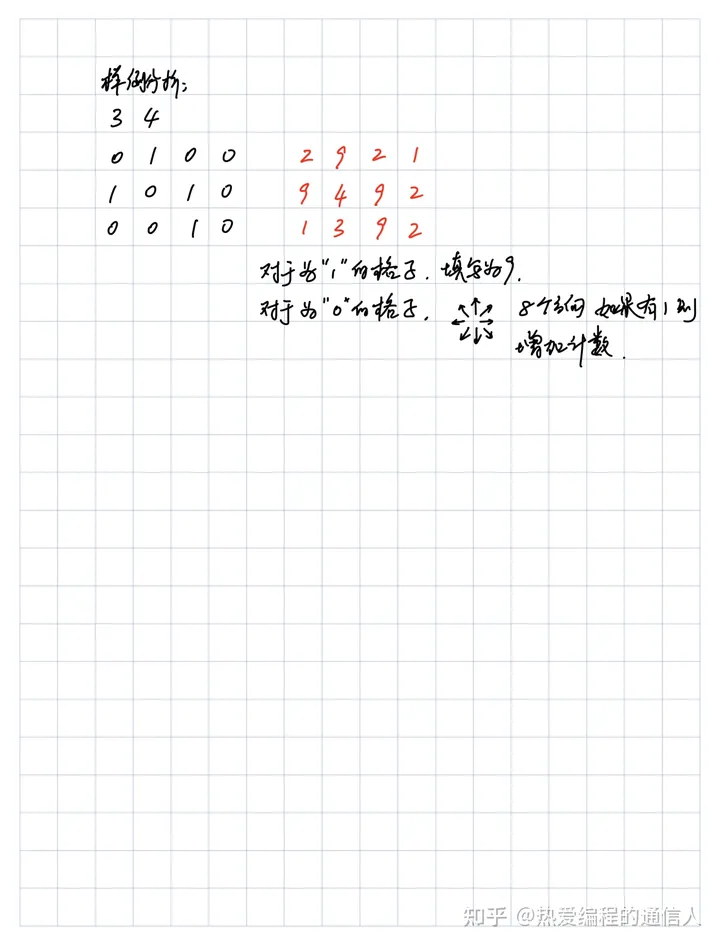 样例分析：
3 4
0 1 0 0 2 9 2 1
1 0 1 0 9 4 9 2
0 0 1 0 1 3 9 2
对于为"1"的格子，填写为9.
对于为"0"的格子， 8个方向 如果有1则
增加计数.
知乎 @热爱编程的通信人